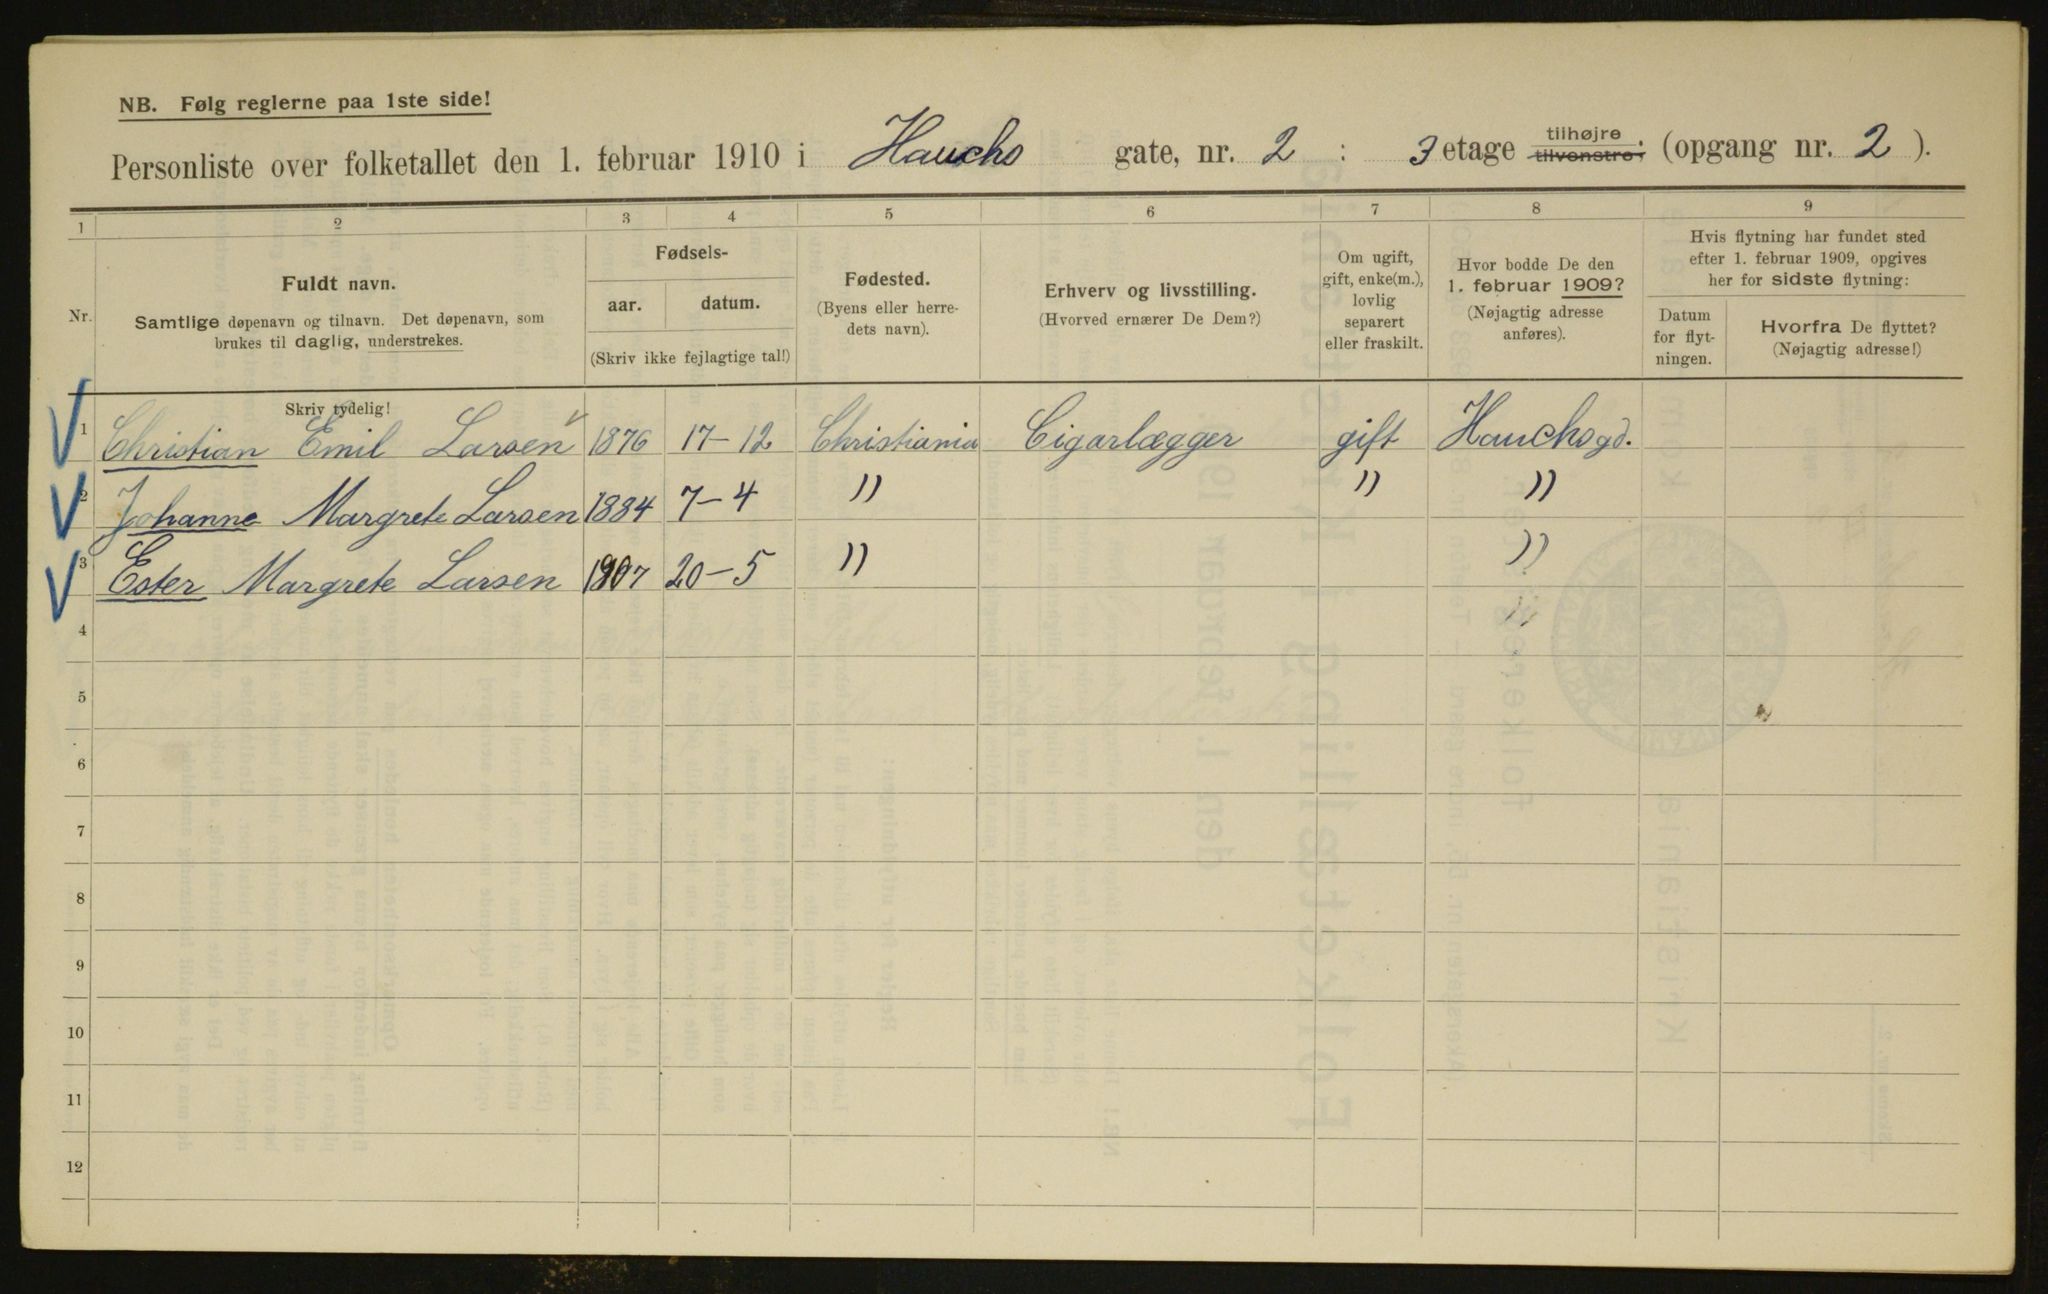 NB. Følg reglerne paa 1ste side!
Personliste over folketallet den 1. februar 1910 i Hauchs gate, nr. 2 : 3 etage tilhøjre tilvenstre; (opgang nr. 2 ).
1 2 3 4 5 6 7 8 9
Nr.
Fuldt navn.
Samtlige døpenavn og tilnavn. Det døpenavn, som
brukes til daglig, understrekes.
Fødsels-
aar. datum.
(Skriv ikke fejlagtige tal!)
Fødested.
(Byens eller herre-
dets navn).
Erhverv og livsstilling.
(Hvorved ernærer De Dem?)
Om ugift,
gift, enke(m.),
lovlig
separert
eller fraskilt.
Hvor bodde De den
1. februar 1909?
(Nøjagtig adresse
anføres).
Hvis flytning har fundet sted
efter 1. februar 1909, opgives
her for sidste flytning:
Datum
for flyt-
ningen.
Hvorfra De flyttet?
(Nøjagtig adresse!)
Skriv tydelig!
1 Christian Emil Larsen 1876 17-12 Christiania Cigarlægger gift Hauchsgd.
2 Johanne Margrete Larsen 1884 7-4 " " "
3 Ester Margrete Larsen 1907 20-5 " "
4
5
6
7
8
9
10
11
12